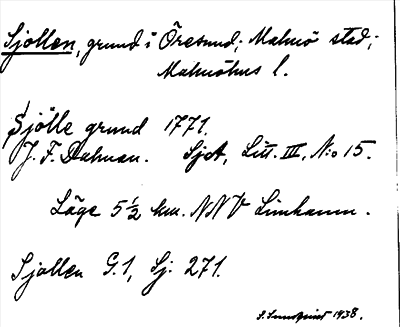 Sjollen, grund i Öresund; Malmö stad;
Malmöhus l.
Sjölle grund 1771.
J. F. Dahman. SjA, Litt. III, N:o 15.
Läge 5 1/2 km. NNV Limhamn.
Sjollen G.1, Sj. 271.
S. Sundquist 1938.